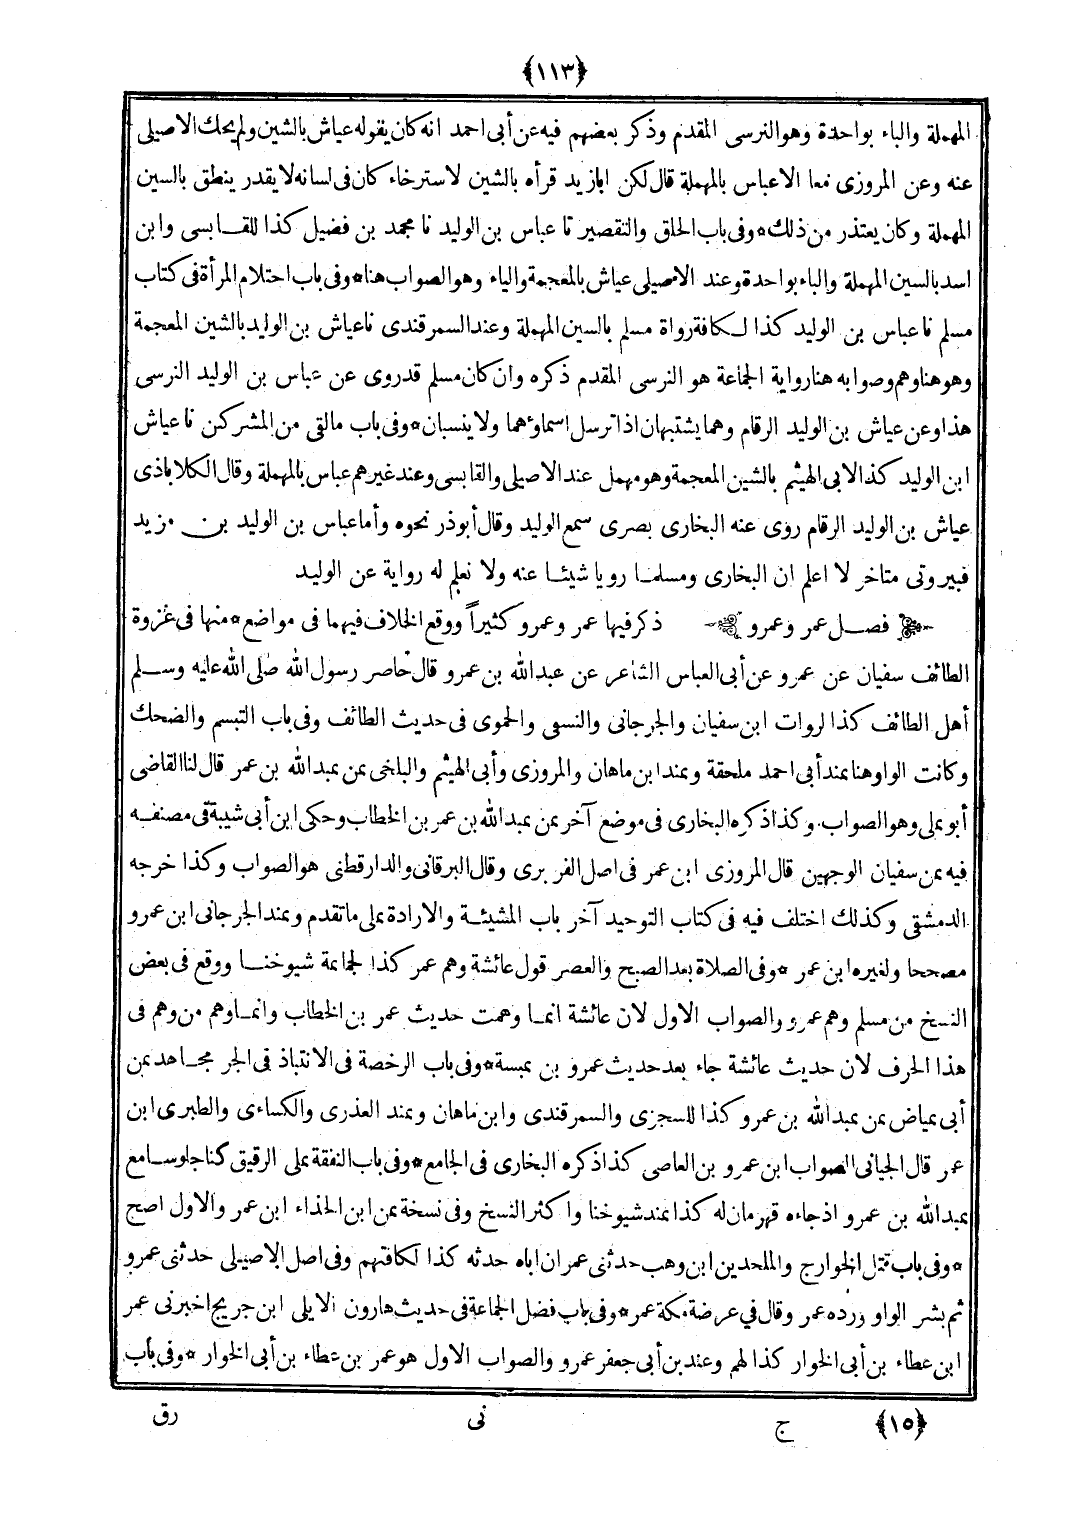 ﴿١١٣﴾
المهملة والباء بواحدة وهو النرسى المقدم وذكر بعضهم فيه عن أبى احمد انه كان يقوله عياش بالشين ولم يحك الاصيلى
عنه وعن المروزى فعا الاعباس بالمهملة قال لكن ابازيد قرأه بالشين لاسترخاء كان فى لسانه لا يقدر ينطق بالسين
المهملة وكان يعتذر من ذلك * وفى باب الحلق والتقصير نا عباس بن الوليد نا محمد بن فضيل كذا للقابسى وابن
اسد بالسين المهملة والباء بواحدة وعند الاصيلى عياش بالمعجمة والياء وهو الصواب هنا * وفى باب احتلام المرأة فى كتاب
مسلم نا عباس بن الوليد كذا لكافة رواة مسلم بالسين المهملة وعند السمرقندى نا عياش بن الوليد بالشين المعجمة
وهو هنا وهم وصوابه هنا رواية الجماعة هو النرسى المقدم ذكره وان كان مسلم قد روى عن عباس بن الوليد النرسى
هذا وعن عياش بن الوليد الرقام وهما يشتبهان اذا ترسل اسماؤهما ولا ينسبان * وفى باب مالقى من المشركين نا عياش
ابن الوليد كذا لابى الهيثم بالشين المعجمة وهو مهمل عند الاصيلى والقابسى وعند غيرهم عباس بالمهملة وقال الكلاباذى
عياش بن الوليد الرقام روى عنه البخارى بصرى سمع الوليد وقال أبو ذر نحوه وأما عباس بن الوليد بن مزيد
فبيروتى متاخر لا اعلم ان البخارى ومسلما رويا شيئا عنه ولا نعلم له رواية عن الوليد
فصل عمر وعمرو ذكر فيها عمر وعمرو كثيراً ووقع الخلاف فيهما فى مواضع * منها فى غزوة
الطائف سفيان عن عمرو عن أبى العباس الشاعر عن عبدالله بن عمرو قال حاصر رسول الله صلى الله عليه وسلم
أهل الطائف كذا لروات ابن سفيان والجرجانى والنسفى والحموى فى حديث الطائف وفى باب التبسم والضحك
وكانت الواو هنا عند أبى احمد ملحقة وعند ابن ماهان والمروزى وأبى الهيثم والبلخى عن عبدالله بن عمر قال لنا القاضى
أبو على وهو الصواب. وكذا ذكره البخارى فى موضع آخر عن عبدالله بن عمر بن الخطاب وحكى ابن أبى شيبة فى مصنفه
فيه عن سفيان الوجهين قال المروزى ابن عمر فى اصل الفربرى وقال البرقانى والدارقطنى هو الصواب وكذا خرجه
الدمشقى وكذلك اختلف فيه فى كتاب التوحيد آخر باب المشيئة والارادة على ما تقدم وعند الجرجانى ابن عمرو
مصححا ولغيره ابن عمر * وفى الصلاة بعد الصبح والعصر قول عائشة وهم عمر كذا لجماعة شيوخنا ووقع فى بعض
النسخ من مسلم وهم عمرو والصواب الاول لان عائشة انما وهمت حديث عمر بن الخطاب وانما وهم من وهم فى
هذا الحرف لان حديث عائشة جاء بعد حديث عمرو بن عبسة * وفى باب الرخصة فى الانتباذ فى الجر مجاهد عن
أبى عياض عن عبدالله بن عمرو كذا للسجزى والسمرقندى وابن ماهان وعند العذرى والكساءى والطبرى ابن
عمر قال الجيانى الصواب ابن عمرو بن العاصى كذا ذكره البخارى فى الجامع * وفى باب النفقة على الرقيق كنا جلوسا مع
عبدالله بن عمرو اذ جاءه قهرمان له كذا عند شيوخنا واكثر النسخ وفى نسخة عن ابن الحذاء ابن عمر والاول اصح
* وفى باب قتل الخوارج والملحدين ابن وهب حدثنى عمر ان اباه حدثه كذا لكافتهم وفى اصل الاصيلى حدثنى عمرو
ثم بشر الواو ورده عمر وقال في عرضة مكة عمر * وفى باب فضل الجماعة فى حديث هارون الايلى ابن جريج اخبرنى عمر
ابن عطاء بن أبى الخوار كذا لهم وعند بن أبى جعفر عمرو والصواب الاول هو عمر بن عطاء بن أبى الخوار * وفى باب
﴿١٥﴾ ج نى رق